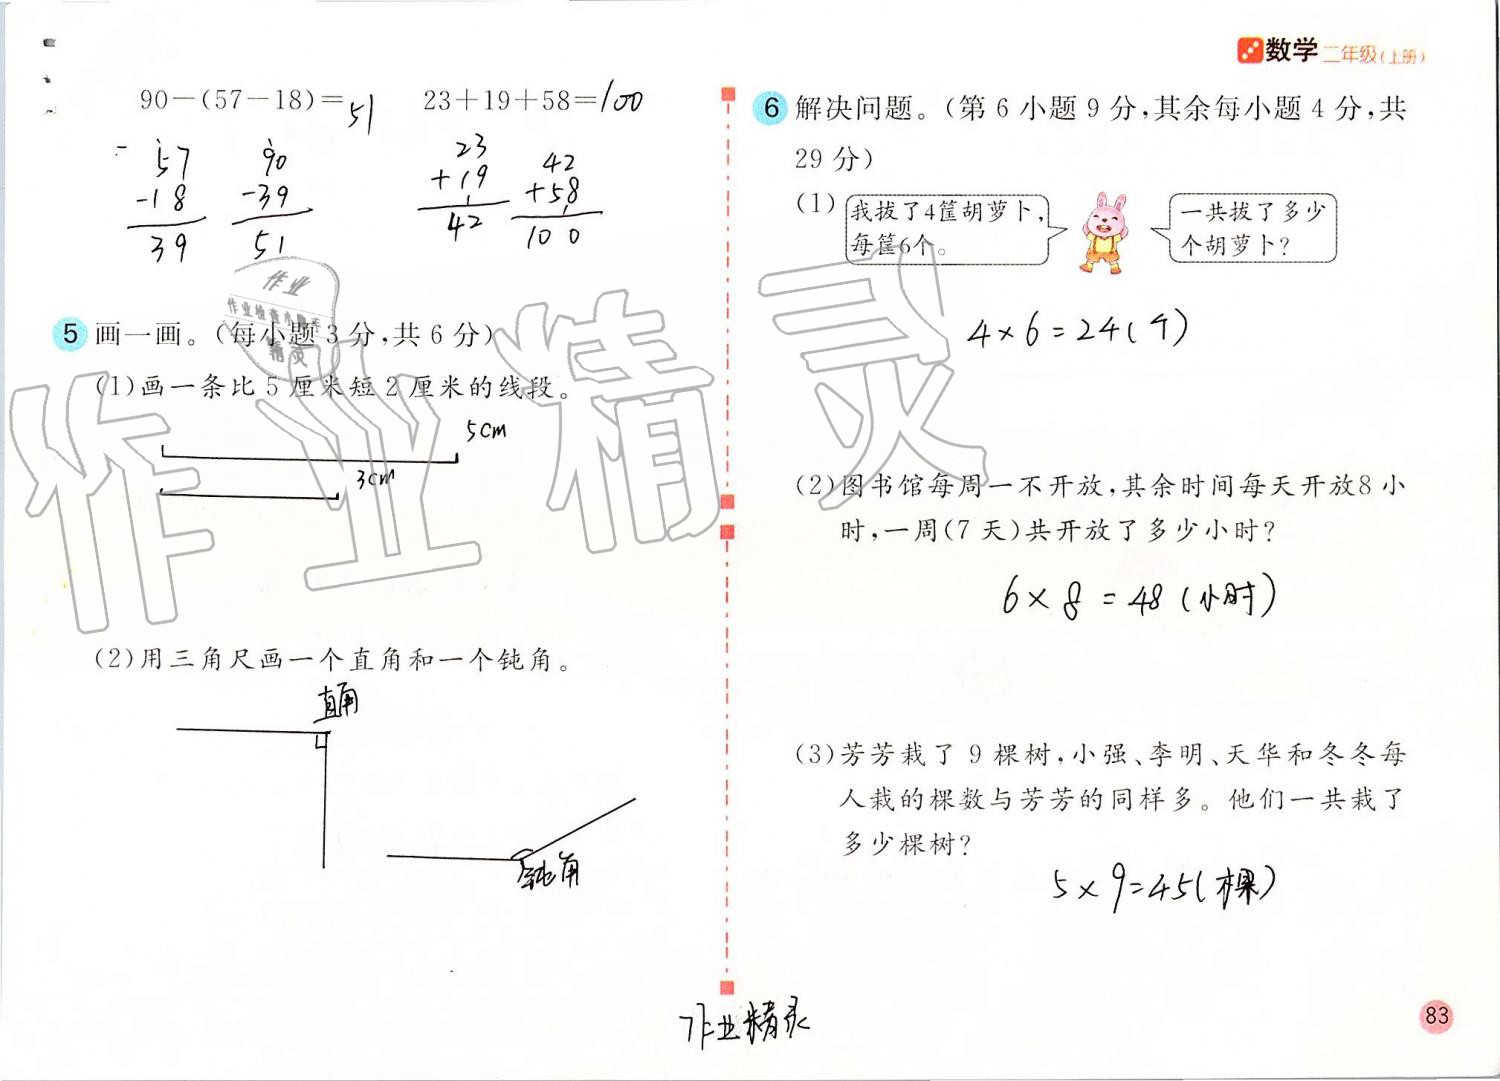 数学 二年级(上册)
90－(57－18)＝51
23＋19＋58＝100
57
-18
39
90
-39
51
23
+19
42
42
+58
100
5 画一画。(每小题3分,共6分)
(1)画一条比5厘米短2厘米的线段。
5cm
3cm
(2)用三角尺画一个直角和一个钝角。
直角
钝角
6 解决问题。(第6小题9分,其余每小题4分,共
29分)
(1) 我拔了4筐胡萝卜,
每筐6个。
一共拔了多少
个胡萝卜?
4×6=24(个)
(2)图书馆每周一不开放,其余时间每天开放8小
时,一周(7天)共开放了多少小时?
6×8=48(小时)
(3)芳芳栽了9棵树,小强、李明、天华和冬冬每
人栽的棵数与芳芳的同样多。他们一共栽了
多少棵树?
5×9=45(棵)
作业精灵
作业
作业检查小助手
精灵
作业精灵
83